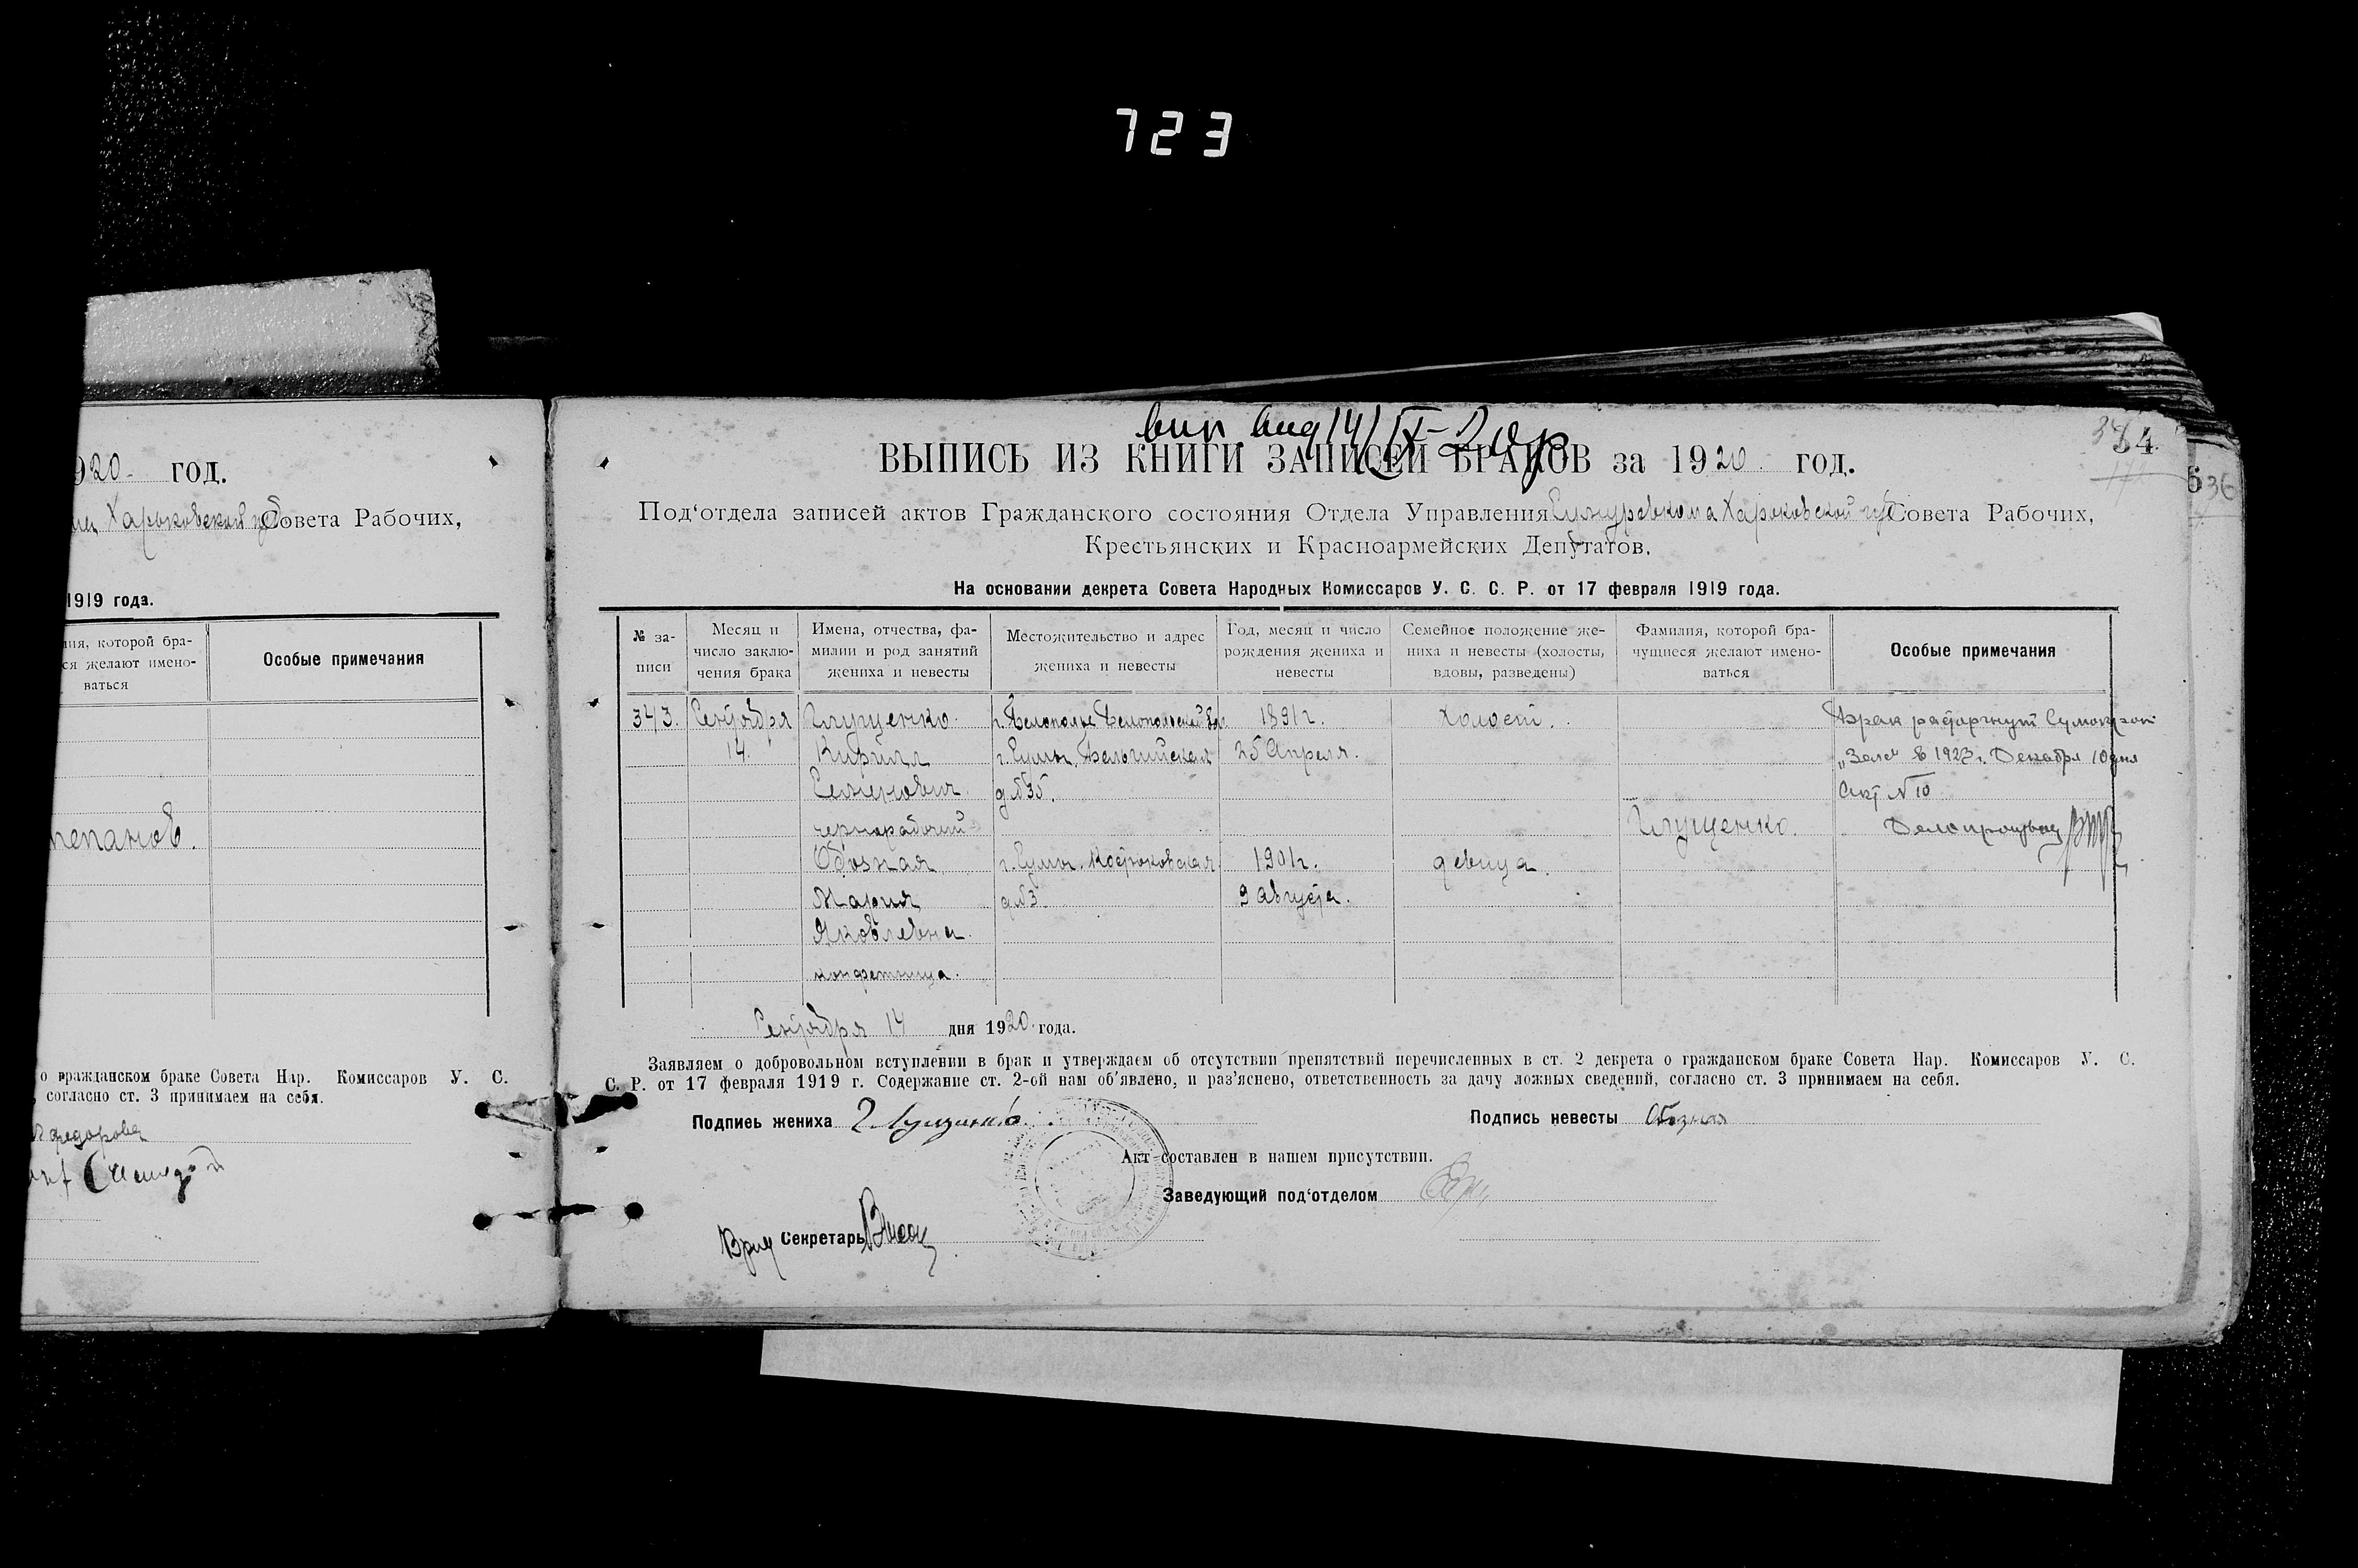 723
920 год.
Харьковской губ Совета Рабочих,
1919 года.
ия, которой бра-
ся желают имено-
ваться
Особые примечания
тепанов.
о гражданском браке Совета Нар. Комиссаров У. С.
согласно ст. 3 принимаем на себя.
Федорова
34
36
ВЫПИСЬ ИЗ КНИГИ ЗАПИСЕЙ БРАКОВ за 1920 год.
Под‘отдела записей актов Гражданского состояния Отдела Управления Сумуревкома Харьковской губ Совета Рабочих,
Крестьянских и Красноармейских Депутатов.
На основании декрета Совета Народных Комиссаров У. С. С. Р. от 17 февраля 1919 года.
№ за-
писи
Месяц и
число заклю-
чения брака
Имена, отчества, фа-
милии и род занятий
жениха и невесты
Местожительство и адрес
жениха и невесты
Год, месяц и число
рождения жениха и
невесты
Семейное положение же-
ниха и невесты (холосты,
вдовы, разведены)
Фамилия, которой бра-
чущиеся желают имено-
ваться
Особые примечания
343. Сентября Глущенко. г. Белополье Белопольской 1891г. холост. Брак расторгнут Сумокрзон
14. Кирилл г. Сумы, Бельгийская 25 Апреля. „Загс" в 1923 г. Декабря 10 дня
Семенович д №35. Акт №10
чернорабочий Глущенко. Делопроизвод
Обозная г. Сумы. Костюковская 1901г. девица.
Мария д №3. 9 Августа.
Яковлевна.
конфетница.
Сентября 14 дня 1920 года.
Заявляем о добровольном вступлении в брак и утверждаем об отсутствии препятствий перечисленных в ст. 2 декрета о гражданском браке Совета Нар. Комиссаров У. С.
С. Р. от 17 февраля 1919 г. Содержание ст. 2-ой нам об‘явлено, и раз‘яснено, ответственность за дачу ложных сведений, согласно ст. 3 принимаем на себя.
Подпись жениха Глущенко. Подпись невесты Обозная
Акт составлен в нашем присутствии.
Заведующий под‘отделом
Врид Секретарь